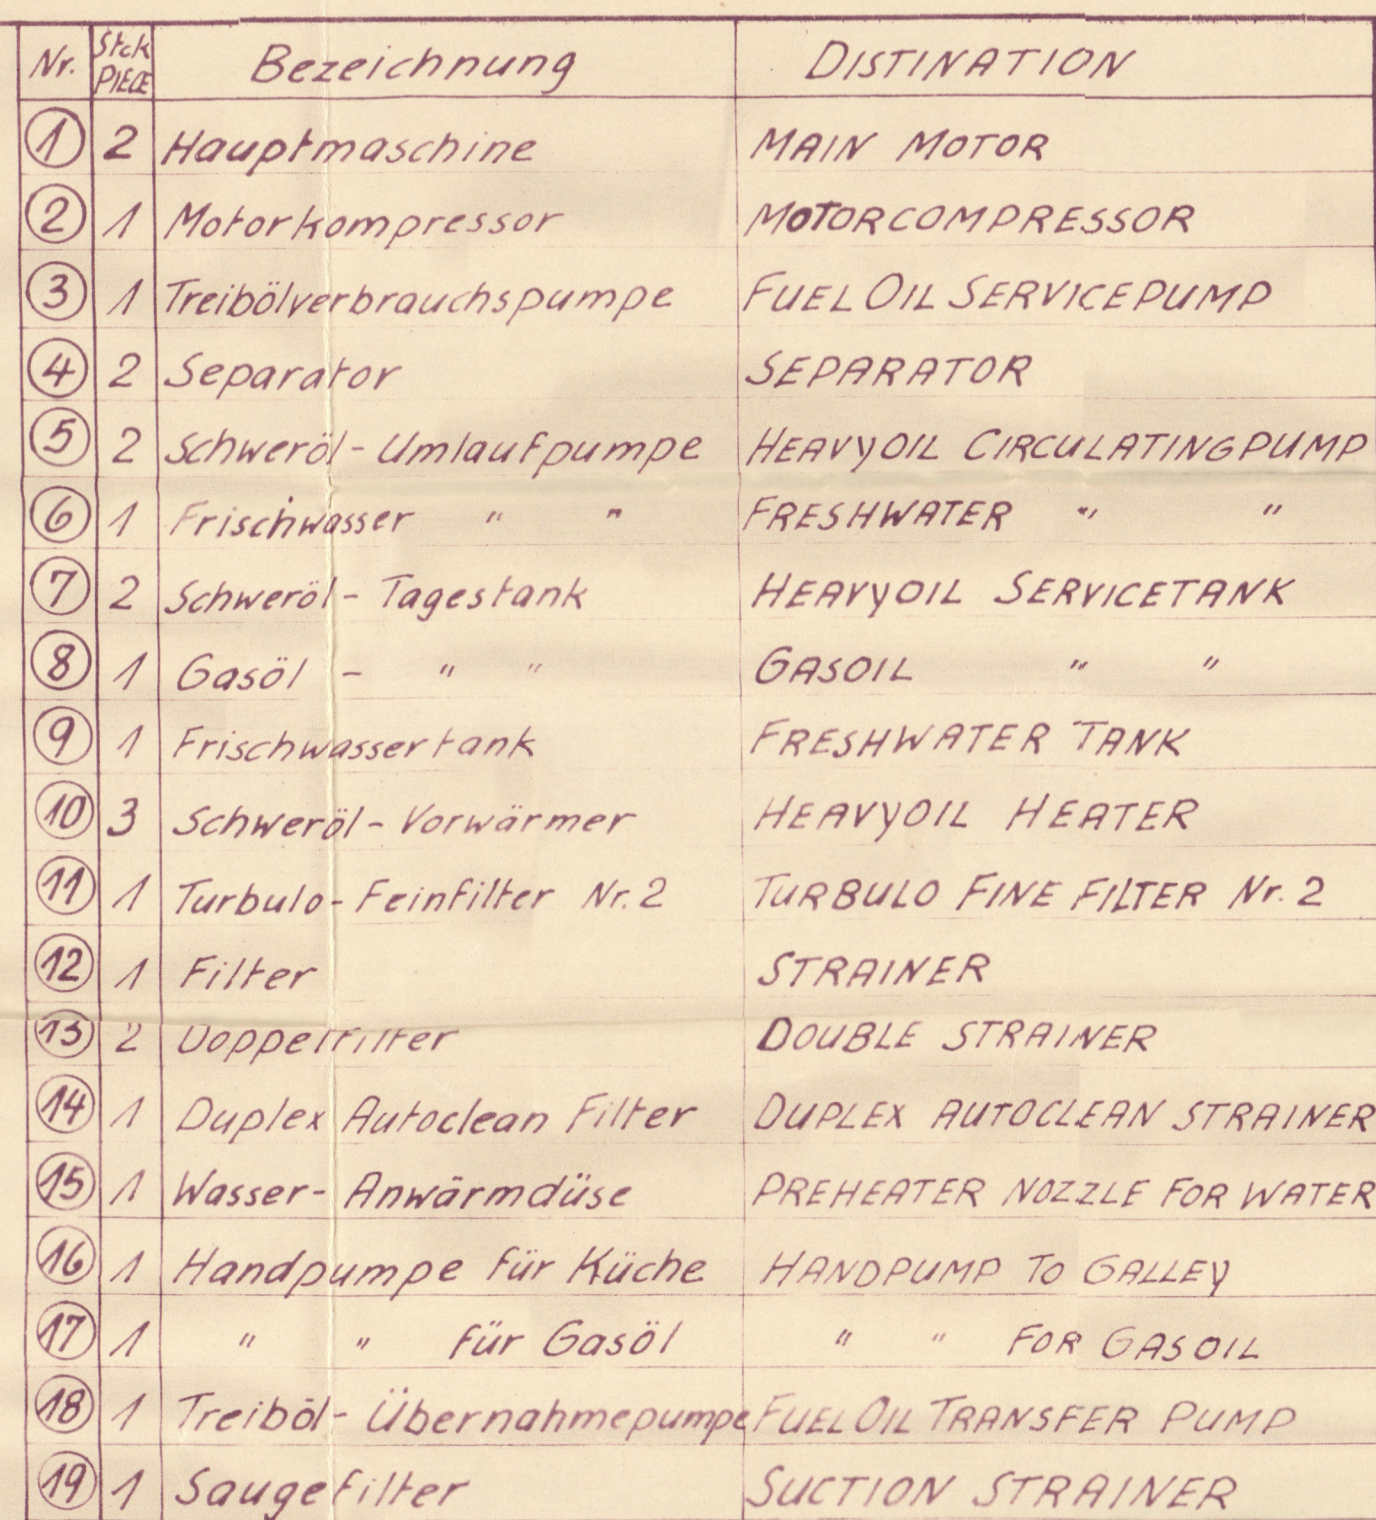 Nr. Stck PIECE Bezeichnung DISTINATION
1 2 Hauptmaschine MAIN MOTOR
2 1 Motorkompressor MOTORCOMPRESSOR
3 1 Treibölverbrauchspumpe FUEL OIL SERVICEPUMP
4 2 Separator SEPARATOR
5 2 Schweröl-Umlaufpumpe HEAVYOIL CIRCULATINGPUMP
6 1 Frischwasser " " FRESHWATER " "
7 2 Schweröl-Tagestank HEAVYOIL SERVICETANK
8 1 Gasöl - " " GASOIL " "
9 1 Frischwassertank FRESHWATER TANK
10 3 Schweröl-Vorwärmer HEAVYOIL HEATER
11 1 Turbulo-Feinfilter Nr. 2 TURBULO FINE FILTER Nr. 2
12 1 Filter STRAINER
13 2 Doppelfilter DOUBLE STRAINER
14 1 Duplex Autoclean Filter DUPLEX AUTOCLEAN STRAINER
15 1 Wasser-Anwärmdüse PREHEATER NOZZLE FOR WATER
16 1 Handpumpe für Küche HANDPUMP TO GALLEY
17 1 " " für Gasöl " " FOR GASOIL
18 1 Treiböl-Übernahmepumpe FUEL OIL TRANSFER PUMP
19 1 Saugefilter SUCTION STRAINER